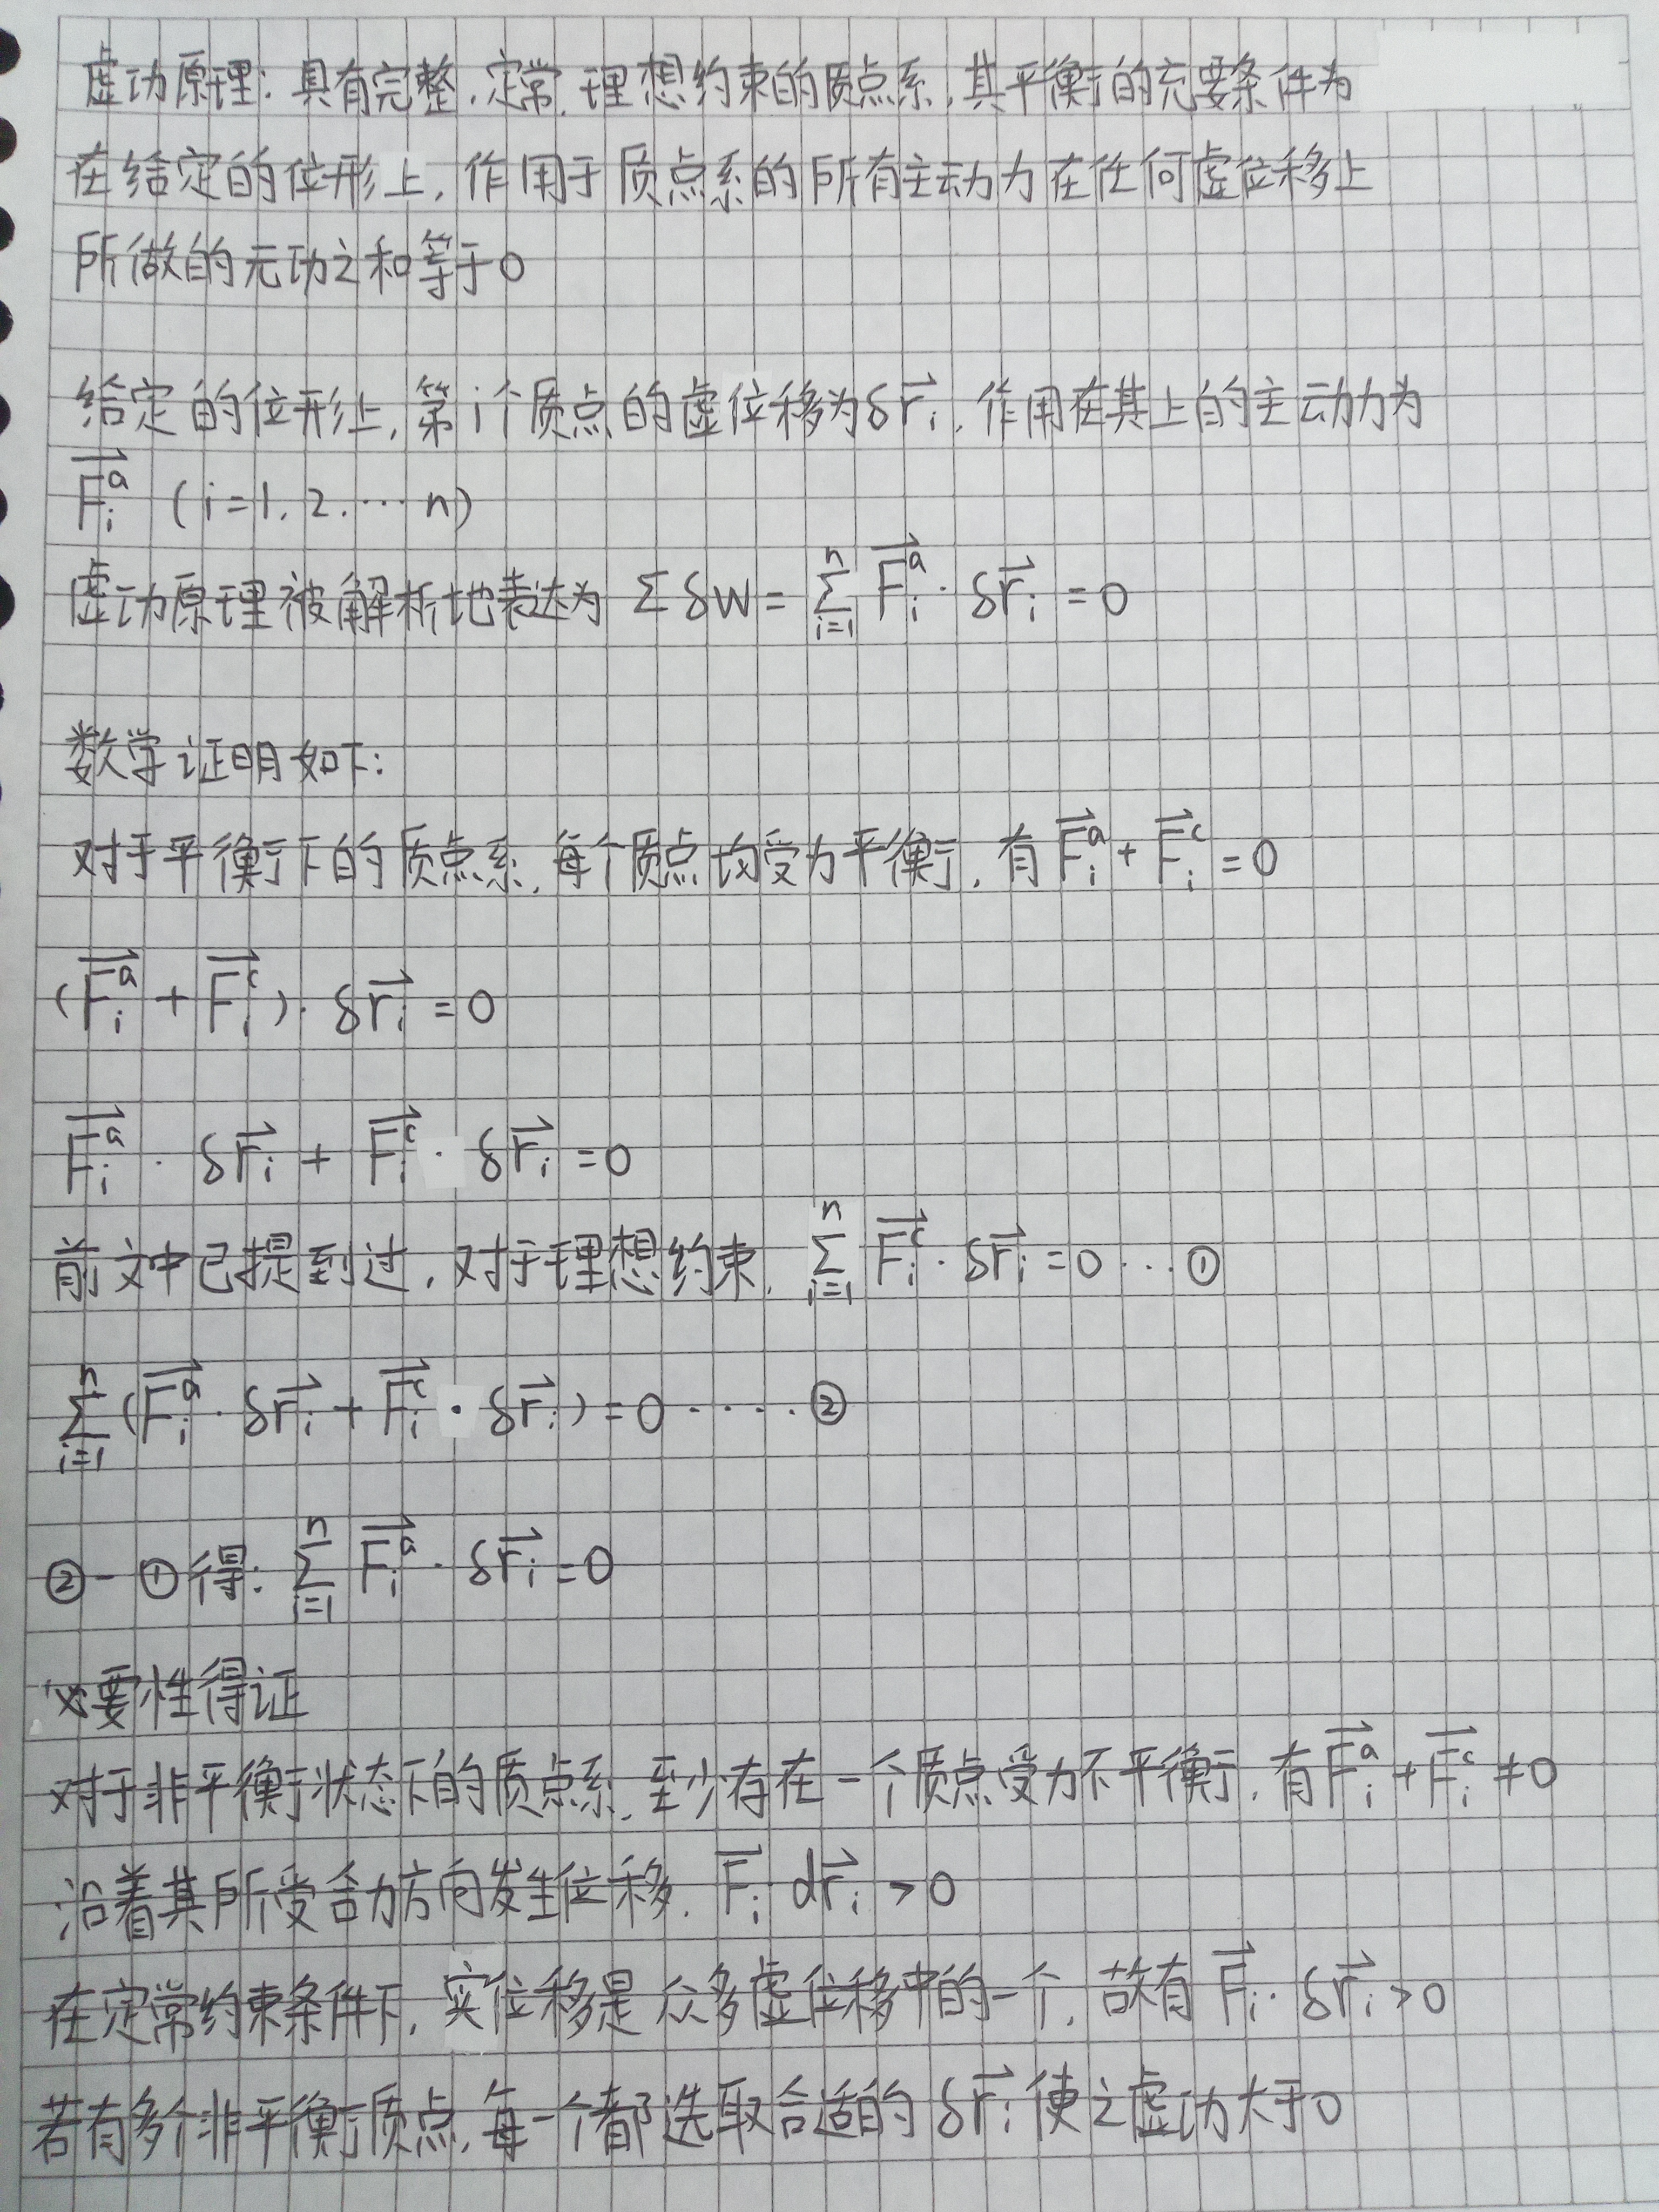 虚功原理：具有完整、定常、理想约束的质点系，其平衡的充要条件为
在给定的位形上，作用于质点系的所有主动力在任何虚位移上
所做的元功之和等于0
给定的位形上，第i个质点的虚位移为δr⃗ᵢ，作用在其上的主动力为
F⃗ᵢᵃ (i=1.2.…n)
虚功原理被解析地表达为 ΣδW = Σᵢ₌₁ⁿ F⃗ᵢᵃ · δr⃗ᵢ = 0
数学证明如下：
对于平衡下的质点系，每个质点均受力平衡，有 F⃗ᵢᵃ + F⃗ᵢᶜ = 0
(F⃗ᵢᵃ + F⃗ᵢᶜ) · δr⃗ᵢ = 0
F⃗ᵢᵃ · δr⃗ᵢ + F⃗ᵢᶜ · δr⃗ᵢ = 0
前文中已提到过，对于理想约束，Σᵢ₌₁ⁿ F⃗ᵢᶜ · δr⃗ᵢ = 0 … ①
Σᵢ₌₁ⁿ (F⃗ᵢᵃ · δr⃗ᵢ + F⃗ᵢᶜ · δr⃗ᵢ) = 0 ····· ②
② - ① 得：Σᵢ₌₁ⁿ F⃗ᵢᵃ · δr⃗ᵢ = 0
必要性得证
对于非平衡状态下的质点系，至少存在一个质点受力不平衡，有 F⃗ᵢᵃ + F⃗ᵢᶜ ≠ 0
沿着其所受合力方向发生位移，F⃗ᵢ dr⃗ᵢ > 0
在定常约束条件下，实位移是众多虚位移中的一个，故有 F⃗ᵢ · δr⃗ᵢ > 0
若有多个非平衡质点，每一个都选取合适的 δr⃗ᵢ 使之虚功大于0